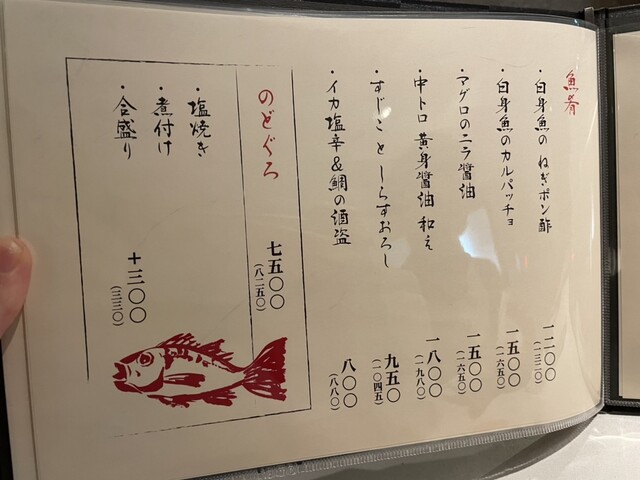 魚肴
・白身魚のねぎポン酢 一二〇〇 (一三二〇)
・白身魚のカルパッチョ 一五〇〇 (一六五〇)
・マグロのニラ醤油 一五〇〇 (一六五〇)
・中トロ 黄身醤油和え 一八〇〇 (一九八〇)
・すじことしらすおろし 九五〇 (一〇四五)
・イカ塩辛&鯛の酒盗 八〇〇 (八八〇)
のどぐろ 七五〇〇 (八二五〇)
・塩焼き
・煮付け
・合盛り +三〇〇 (三三〇)